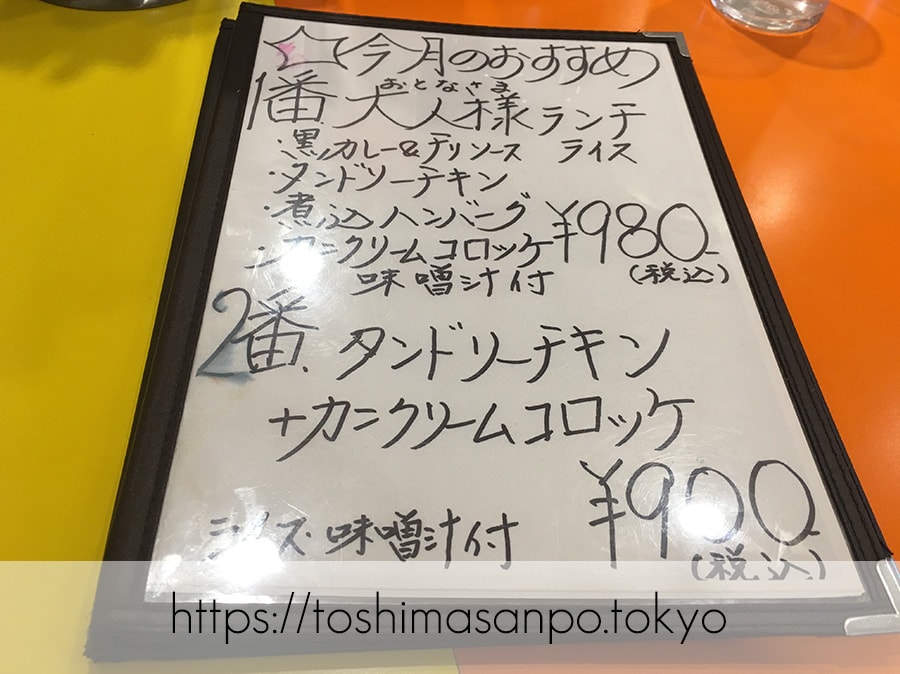 ☆今月のおすすめ
おとなさま
1番 大人様ランチ
・黒カレー&デリソース ライス
・タンドリーチキン
・煮込ハンバーグ ¥980
・カニクリームコロッケ
味噌汁付 (税込)
2番. タンドリーチキン
+カニクリームコロッケ
¥900
味噌汁付
(税込)
https://toshimasanpo.tokyo